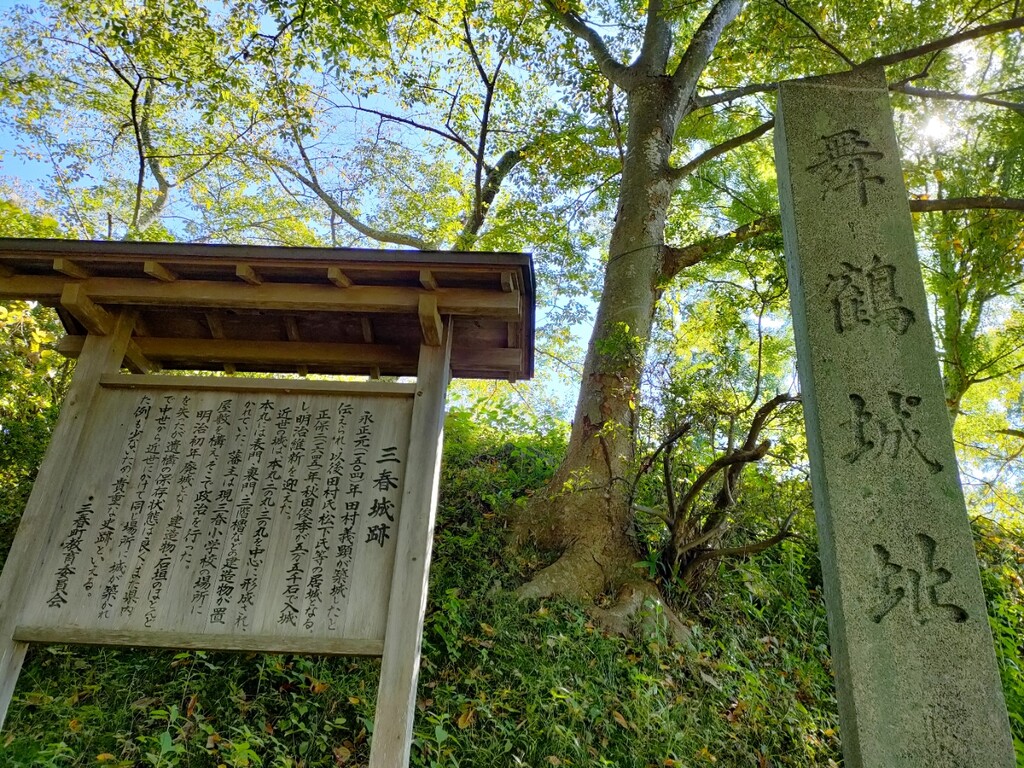 三春城跡
永正元(一五〇四)年田村義顕が築城したと
伝えられ、以後田村氏、松下氏等の居城となる。
正保二(一六四五)年、秋田俊季が五万五千石で入城
し明治維新を迎えた。
近世の城は、本丸、二の丸、三の丸を中心に形成され、
本丸には表門、裏門、三階櫓などの建造物が置
かれていた。藩主は現三春小学校の場所に
屋敷を構え、そこで政治を行った。
明治初年廃城となり、建造物、石垣のほとんど
を失ったが遺構の保存状態は良く、また県内
で中世から近世にかけて同じ場所に城が築かれ
た例も少ないため貴重な史跡といえる。
・三春町教育委員会
舞鶴城址